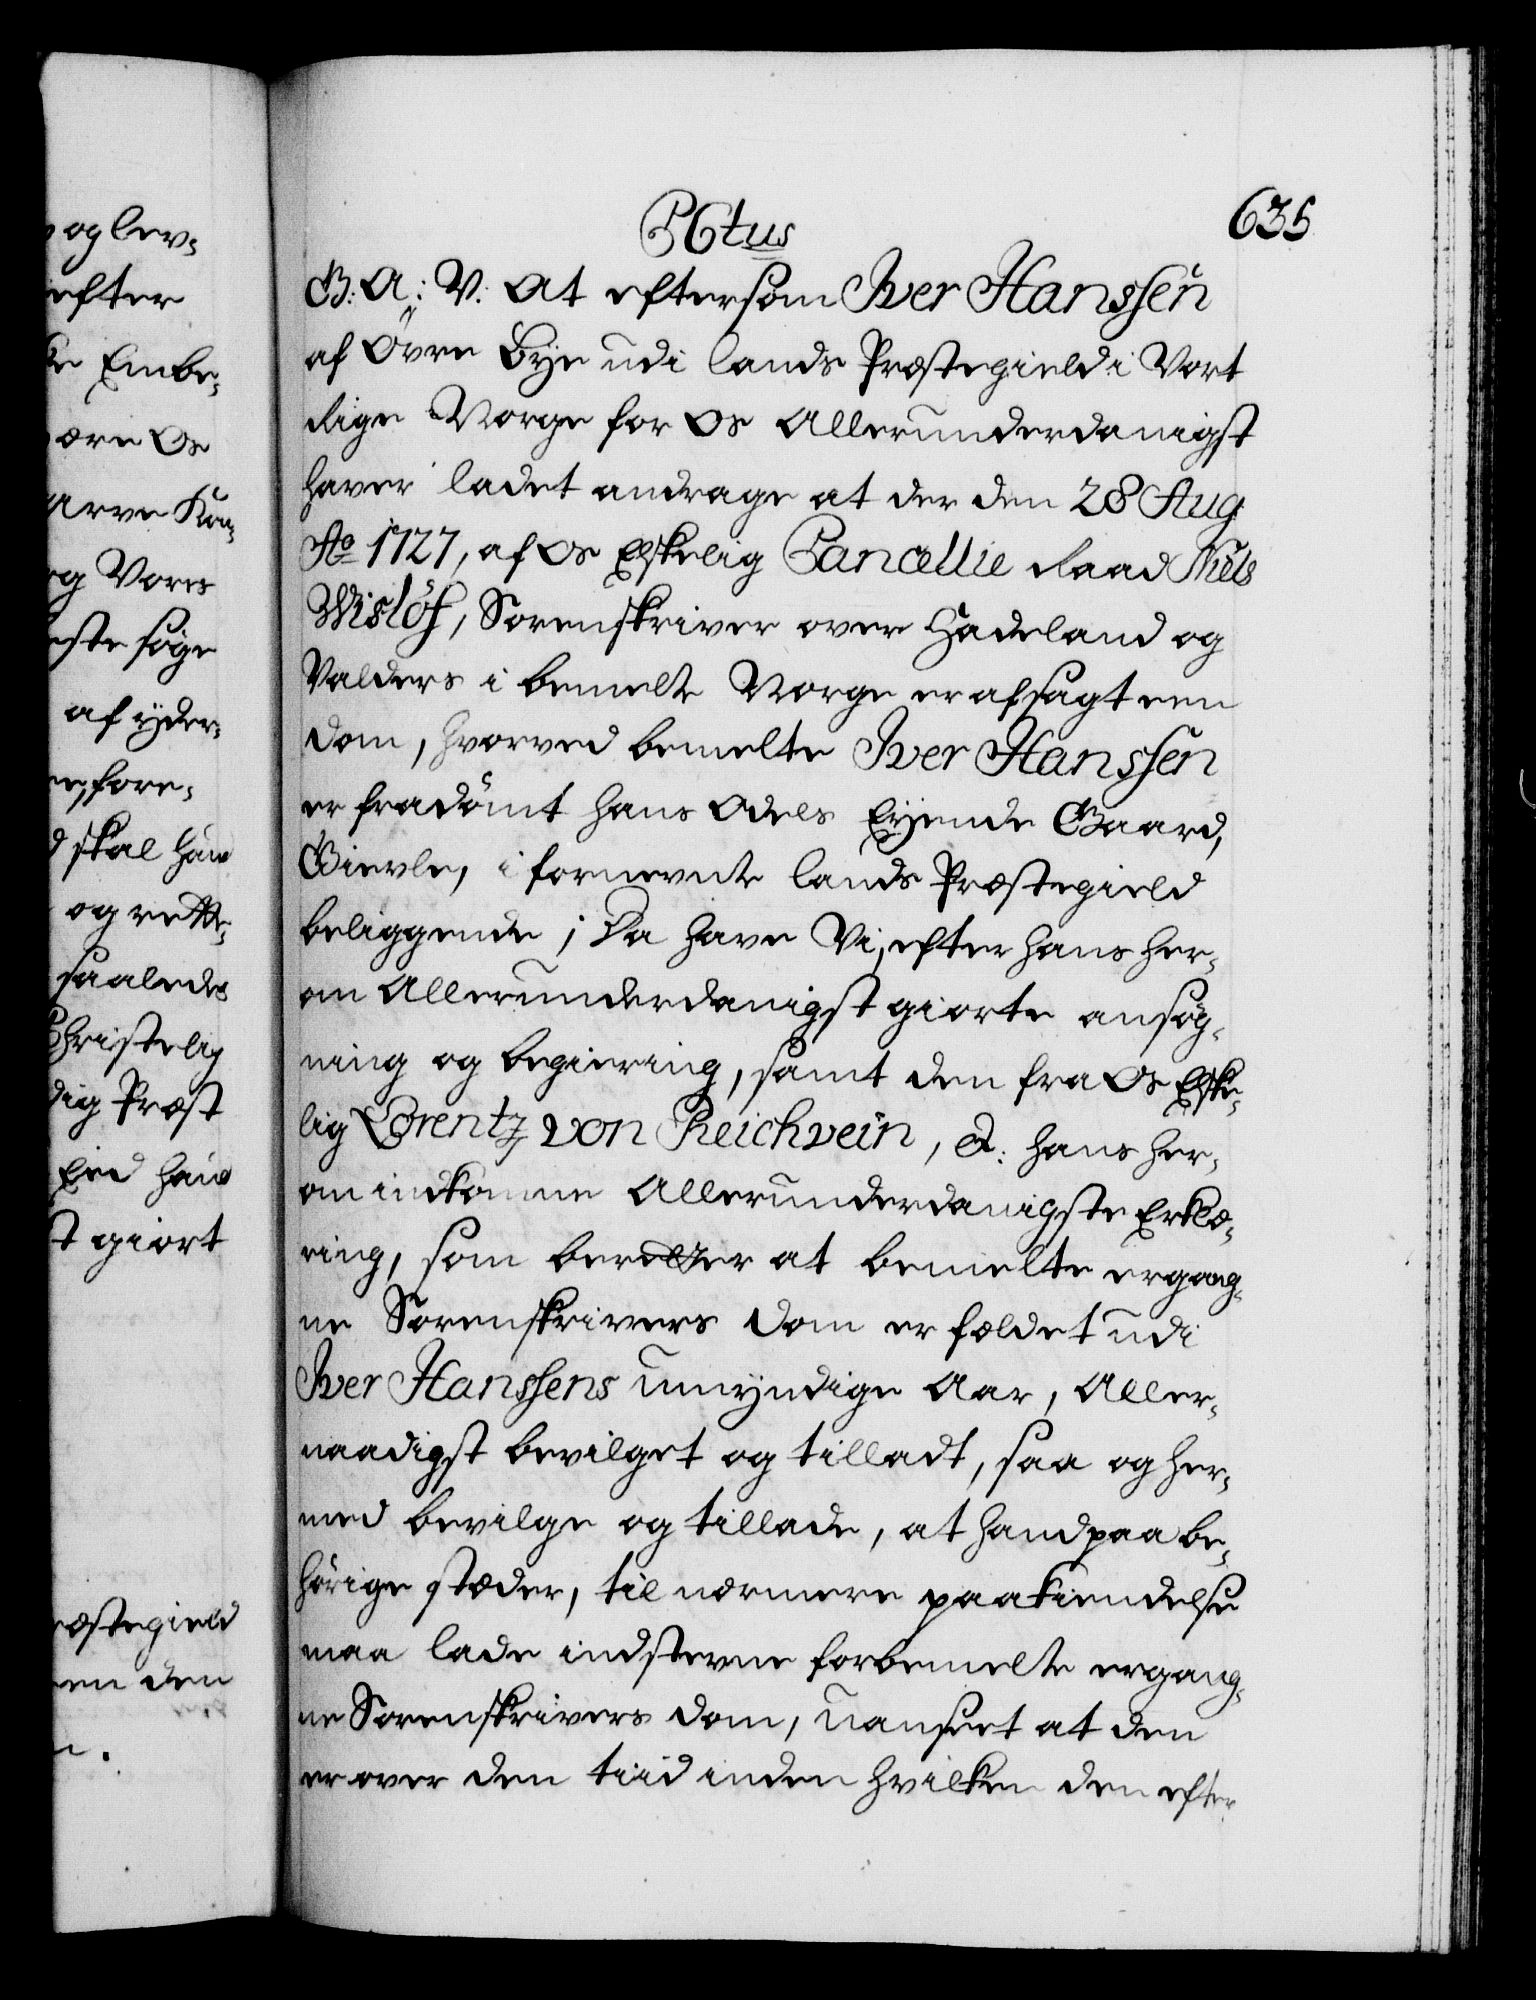 og lev¬
efter
ke Embe¬
være Os
arve Kon¬
og Vores
este søge
af yder¬
fore¬
skal hand
og rette¬
saaledes
Christelig
dig Præst
Eed hand
st giort
ræstegield
en den
635
PCtus
G: A: V: At eftersom Iver Hanssen
af Övre Bye udi Lands Præstegield i Vort
Rige Norge for Os Allerunderdanigst
haver ladet andrage at der den 28 Aug
Ao 1727, af Os Elskelig Cancellie Raad Niels
Wislöf, Sorenskriver over Hadeland og
Valders i bemelte Norge er afsagt een
Dom, hvorved bemelte Iver Hanssen
er fradömt hans Odels Eyende Gaard,
Gievle, i fornevnte Lands Præstegield
beliggende; Da have Vi, efter hans her¬
om Allerunderdanigst giorte ansög¬
ning og begiering, samt den fra Os Elske¬
lig Lorentz von Reichvein, &: hans her¬
om indkomne Allerunderdanigste Erklæ¬
ring, som beretter at bemelte ergang¬
ne Sorenskrivers Dom er fældet udi
Iver Hanssens umyndige Aar, Aller¬
naadigst bevilget og tilladt, saa og her¬
med bevilge og tillade, at hand paa be¬
hörige stæder, til nærmere paakiendelse
maa lade indstevne forbemelte ergang¬
ne Sorenskrivers Dom, uanseet at den
er over den tiid inden hvilken den efter